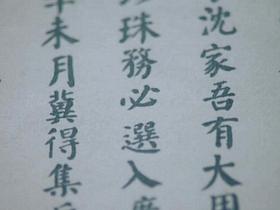 沈家吾有大用
珠務必選入
未月冀得集